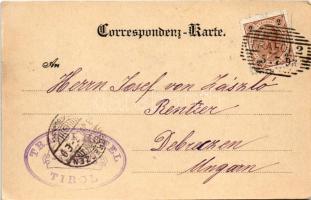 Correspondenz-Karte.
An
Herrn Josef von László
Rentier
Debreczen
Ungarn
TIROL
2
2